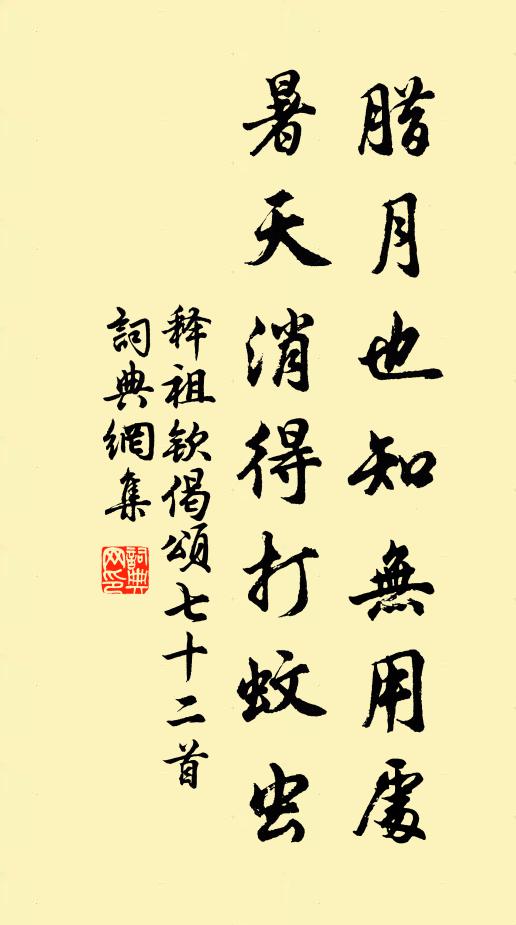 腊月也知無用處
暑天消得打蚊虫
释祖钦偈颂七十二首
詞典網集
詞典网印